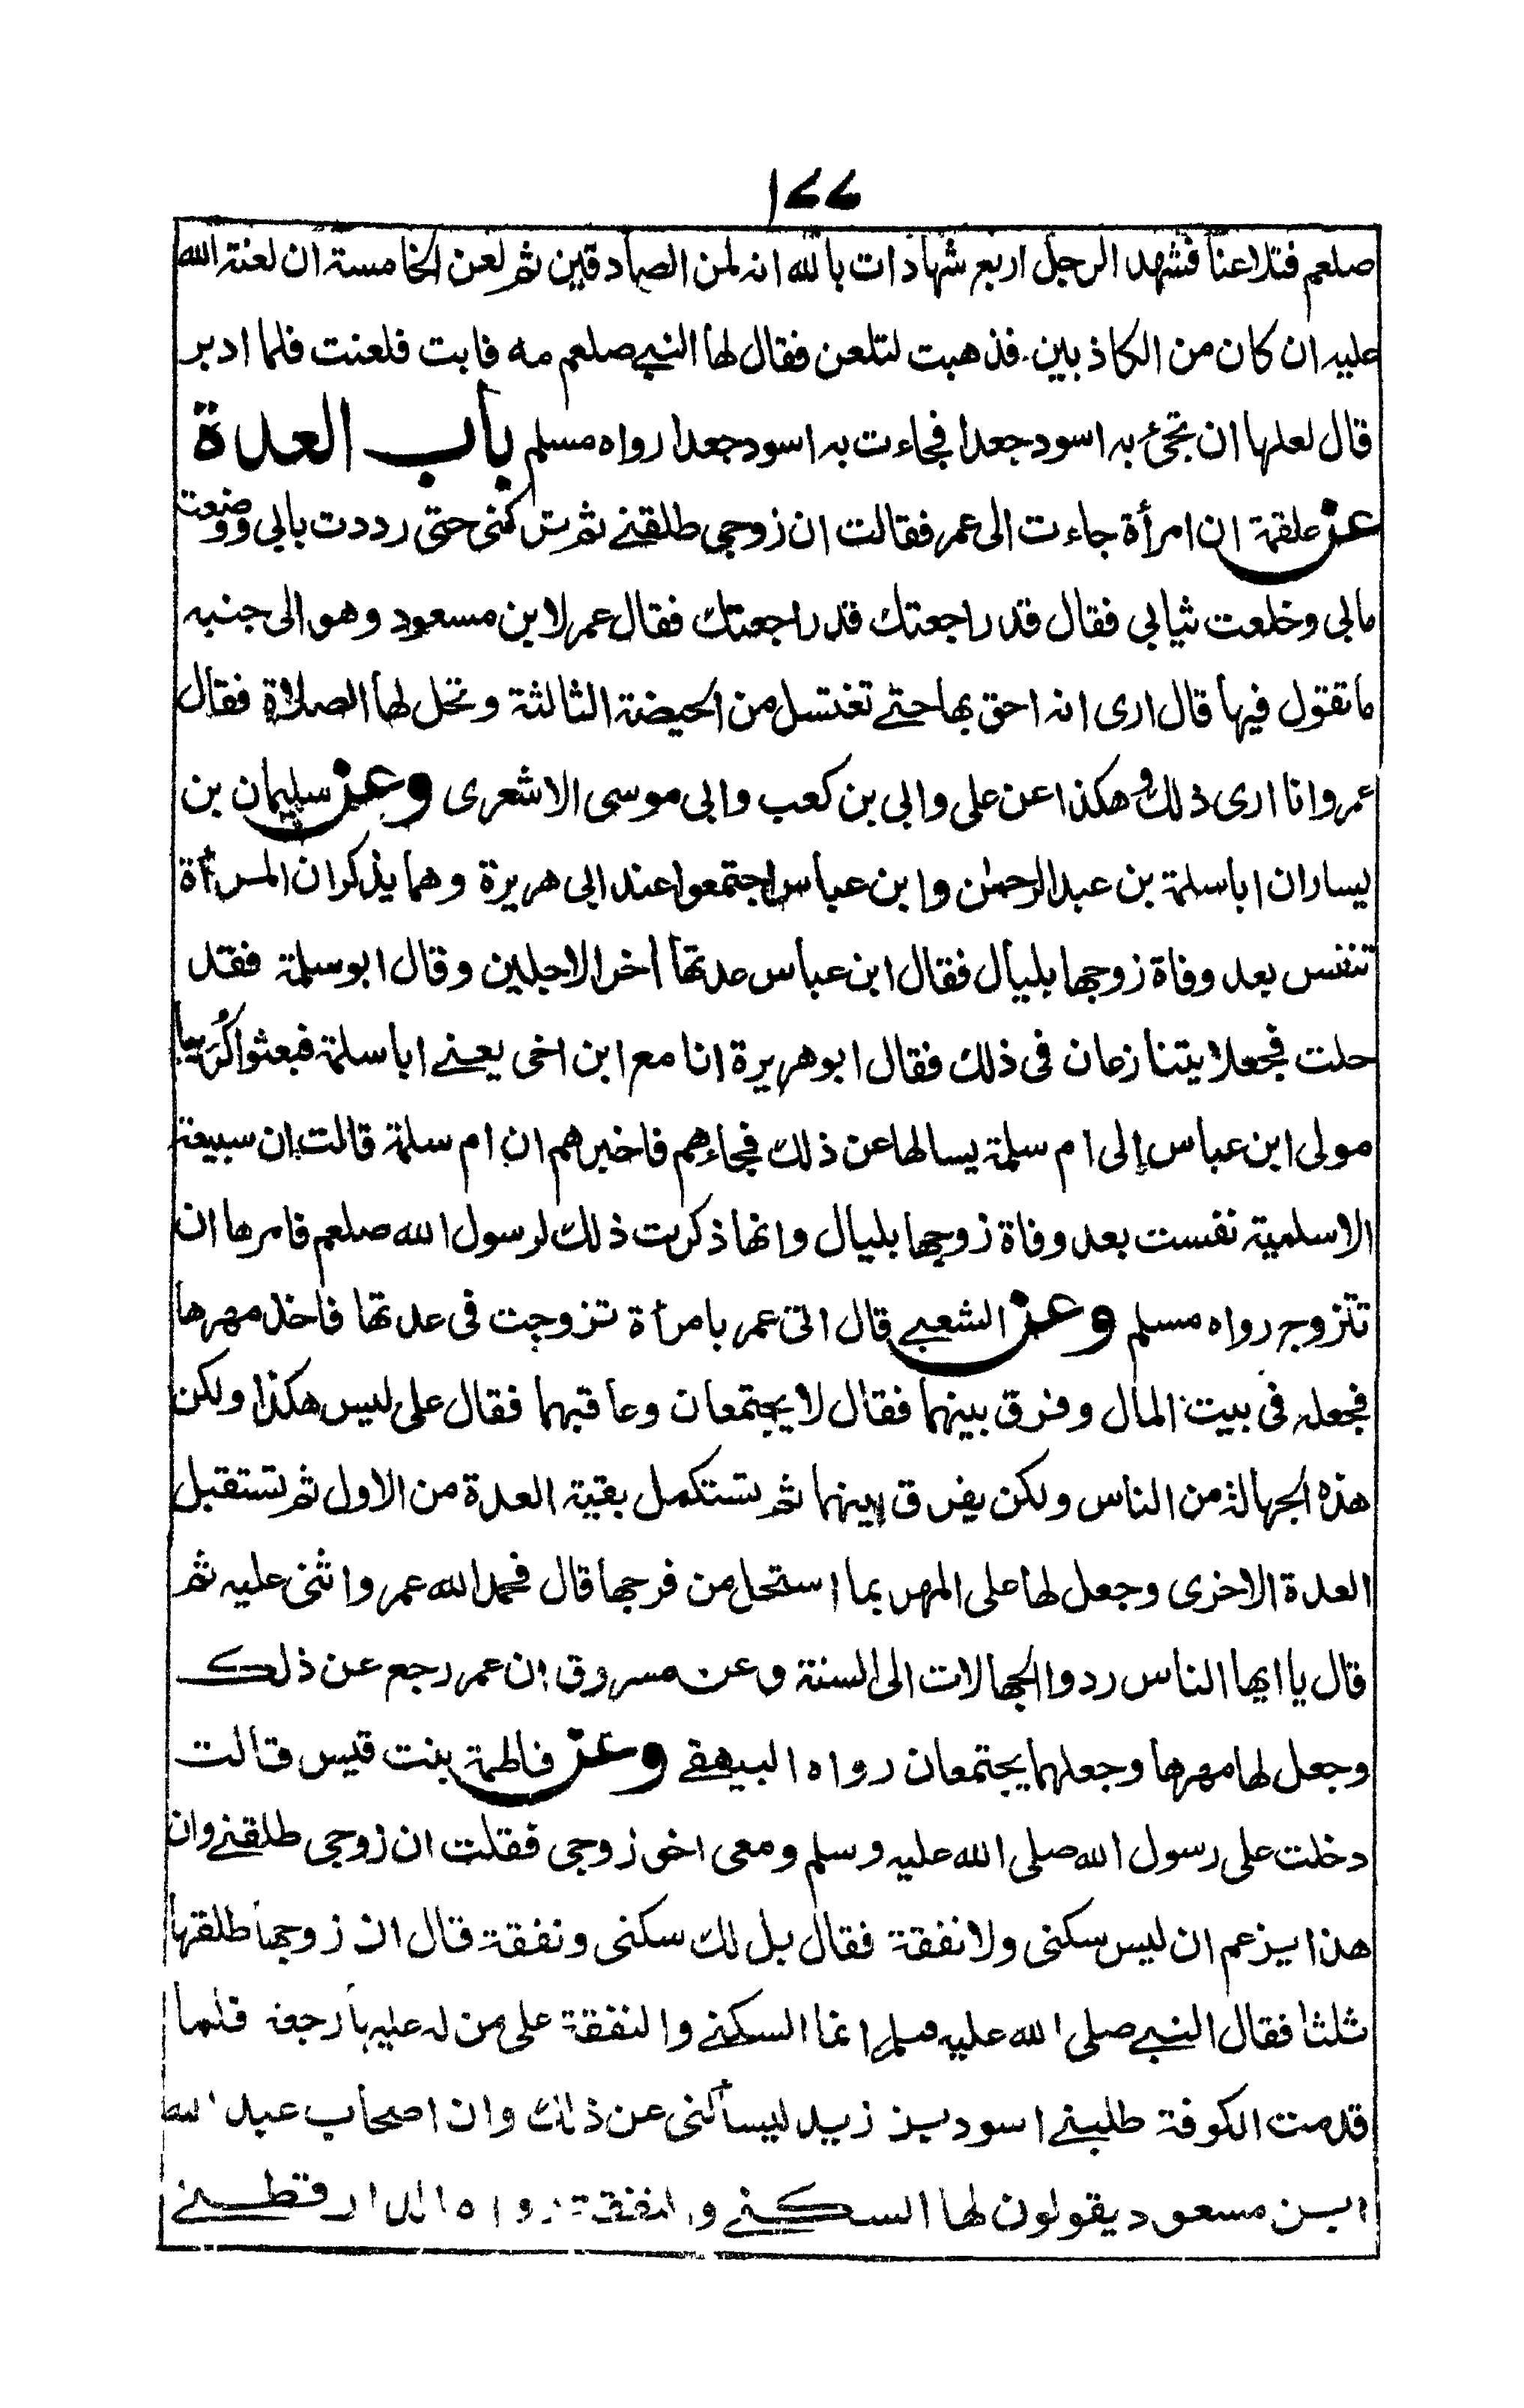 ١٧٧
صلعم فتلاعنا فشهد الرجل اربع شهادات بالله انه لمن الصادقين ثم لعن الخامسة ان لعنة الله
عليه ان كان من الكاذبين فذهبت لتلعن فقال لها النبي صلعم مه فابت فلعنت فلما ادبر
قال لعلها ان تجئ به اسود جعدا فجاءت به اسود جعدا رواه مسلم باب العدة
عن علقمة ان امرأة جاءت الى عمر فقالت ان زوجي طلقني ثم تركني حتى رددت بابي ووضعت
مالى وخلعت ثيابي فقال قد راجعتك قد راجعتك فقال عمر لابن مسعود وهو الى جنبه
ما تقول فيها قال ارى انه احق بها حتى تغتسل من الحيضة الثالثة وتحل لها الصلاة فقال
عمر وانا ارى ذلك وهكذا عن على وابي بن كعب وابي موسى الاشعرى وعن سليمان بن
يسار ان ابا سلمة بن عبد الرحمٰن وابن عباس اجتمعوا عند ابى هريرة وهما يذكران المرأة
تنفس بعد وفاة زوجها بليال فقال ابن عباس عدتها أخر الاجلين وقال ابو سلمة فقد
حلت فجعلا يتنازعان فى ذلك فقال ابو هريرة انا مع ابن اخى يعنى ابا سلمة فبعثوا كُرَيبا
مولى ابن عباس إلى ام سلمة يسالها عن ذلك فجاءهم فاخبرهم ان ام سلمة قالت إن سبيعة
الاسلمية نفست بعد وفاة زوجها بليال وانها ذكرت ذلك لرسول الله صلعم فامرها ان
تتزوج رواه مسلم وعن الشعبي قال اتى عمر بامرأة تزوجت فى عدتها فاخذ مهرها
فجعله فى بيت المال وفرق بينهما فقال لا يجتمعان وعاقبهما فقال على ليس هكذا ولكن
هذه الجهالة من الناس ولكن يفرق بينهما ثم تستكمل بقية العدة من الاول ثم تستقبل
العدة الاخرى وجعل لها على المهر بما استحل من فرجها قال فحمد الله عمر واثنى عليه ثم
قال يا ايها الناس ردوا الجهالات الى السنة وعن مسروق ان عمر رجع عن ذلك
وجعل لها مهرها وجعلهما يجتمعان رواه البيهقى وعن فاطمة بنت قيس قالت
دخلت على رسول الله صلى الله عليه وسلم ومعى اخو زوجى فقلت ان زوجى طلقنى وان
هذا يزعم ان ليس سكنى ولا نفقة فقال بل لك سكنى ونفقة قال ان زوجها طلقها
ثلثا فقال النبي صلى الله عليه وسلم انما السكنى والنفقة على من له عليها رجعة فلما
قدمت الكوفة طلبنى اسود بن زيد ليسألنى عن ذلك وان اصحاب عبد الله
ابن مسعود يقولون لها السكنى والنفقة رواه الدارقطنى